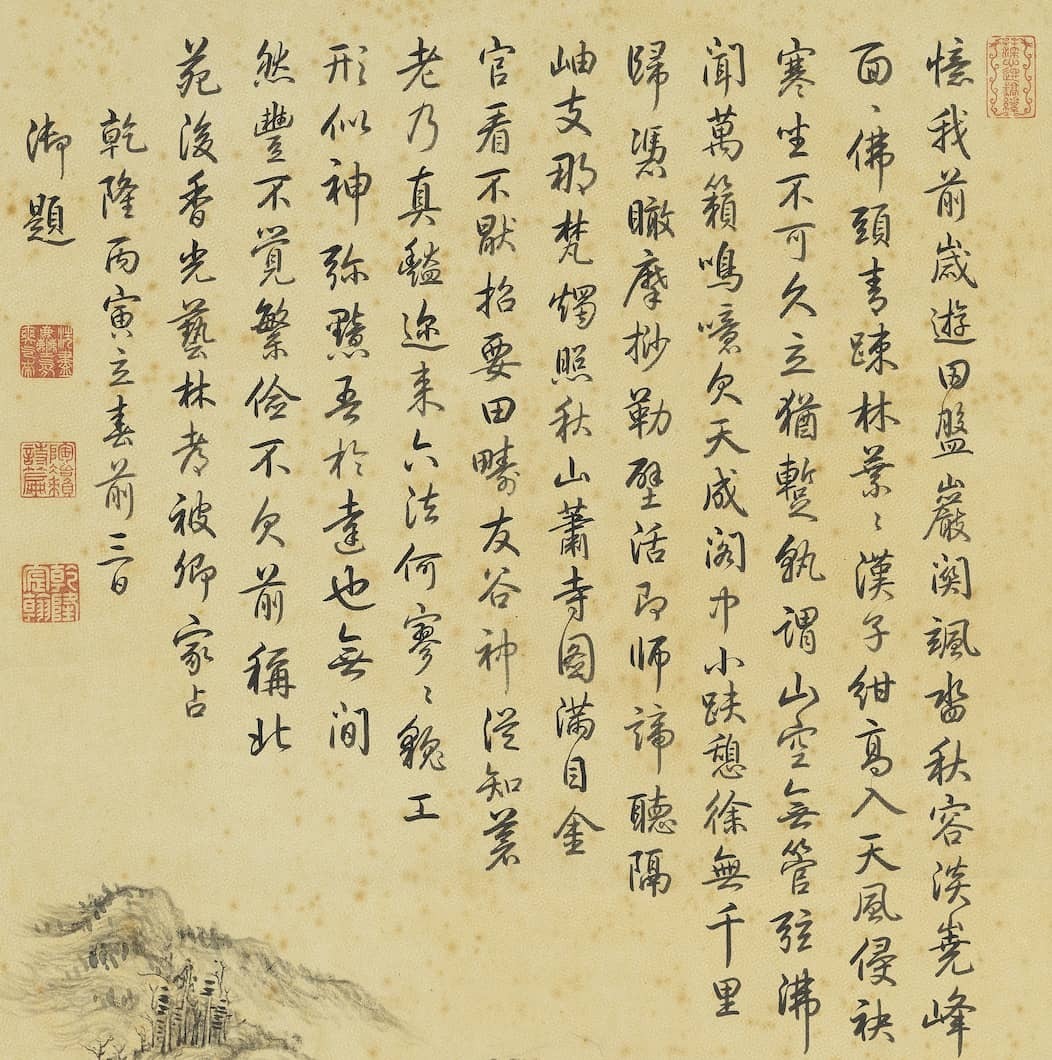 憶我前歲遊田盤巖關颯沓秋容淡嶤峰
面〻佛頭青疎林葉〻漢子紺高入天風侵袂
寒坐不可久立猶蹔孰謂山空無管弦沸
聞萬籟鳴噫欠天成阁中小趺憩徐無千里
歸憑瞰摩挱勒壁活即师諦聽隔
岫支那梵燭照秋山蕭寺圖滿目金
官看不厭招要田疇友谷神從知荖
老乃真豔迩来六法何寥〻貌工
形似神弥黮吾於逹也無间
然豐不覺繁儉不欠前稱北
苑後香光藝林考被卿家占
乾隆丙寅立春前三日
御題
乾隆宸翰